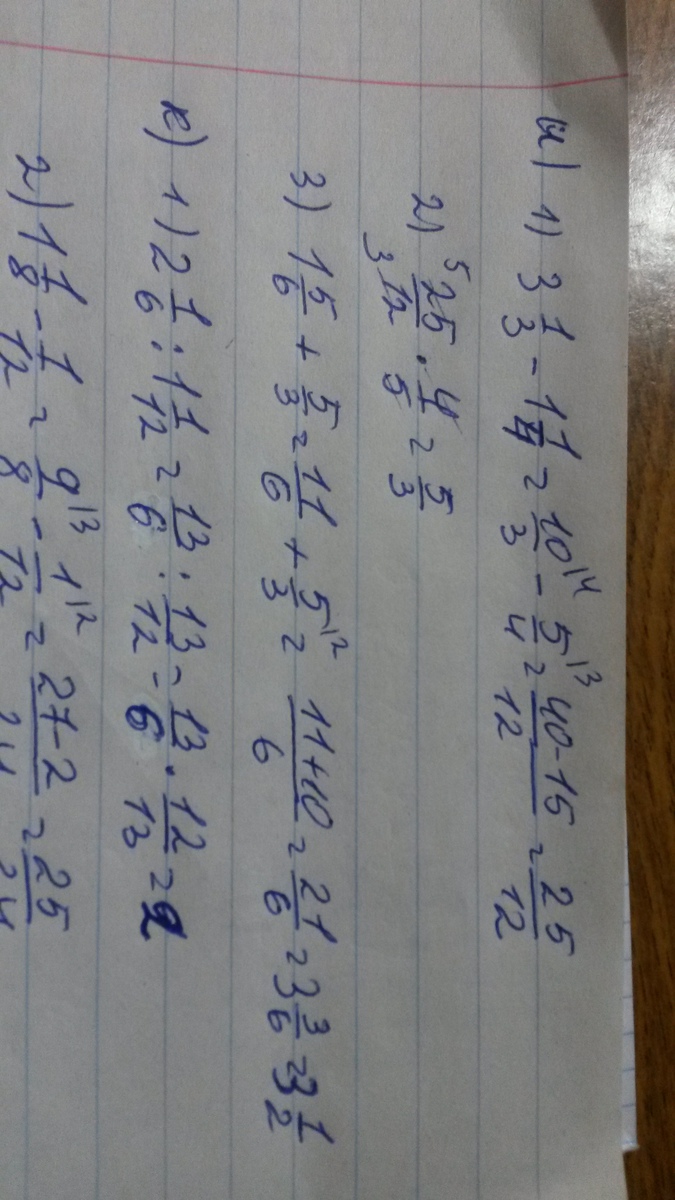 и) 1) 3 1/3 - 1 1/4 = 10/3 |4 - 5/4 |3 = 40-15/12 = 25/12
2) 5 25/12 3 · 4/5 = 5/3
3) 1 5/6 + 5/3 = 11/6 + 5/3 |2 = 11+10/6 = 21/6 = 3 3/6 = 3 1/2
к) 1) 2 1/6 : 1 1/12 = 13/6 : 13/12 = 13/6 · 12/13 = 2
2) 1 1/8 - 1/12 = 9/8 |3 - 1/12 |2 = 27-2/24 = 25/24